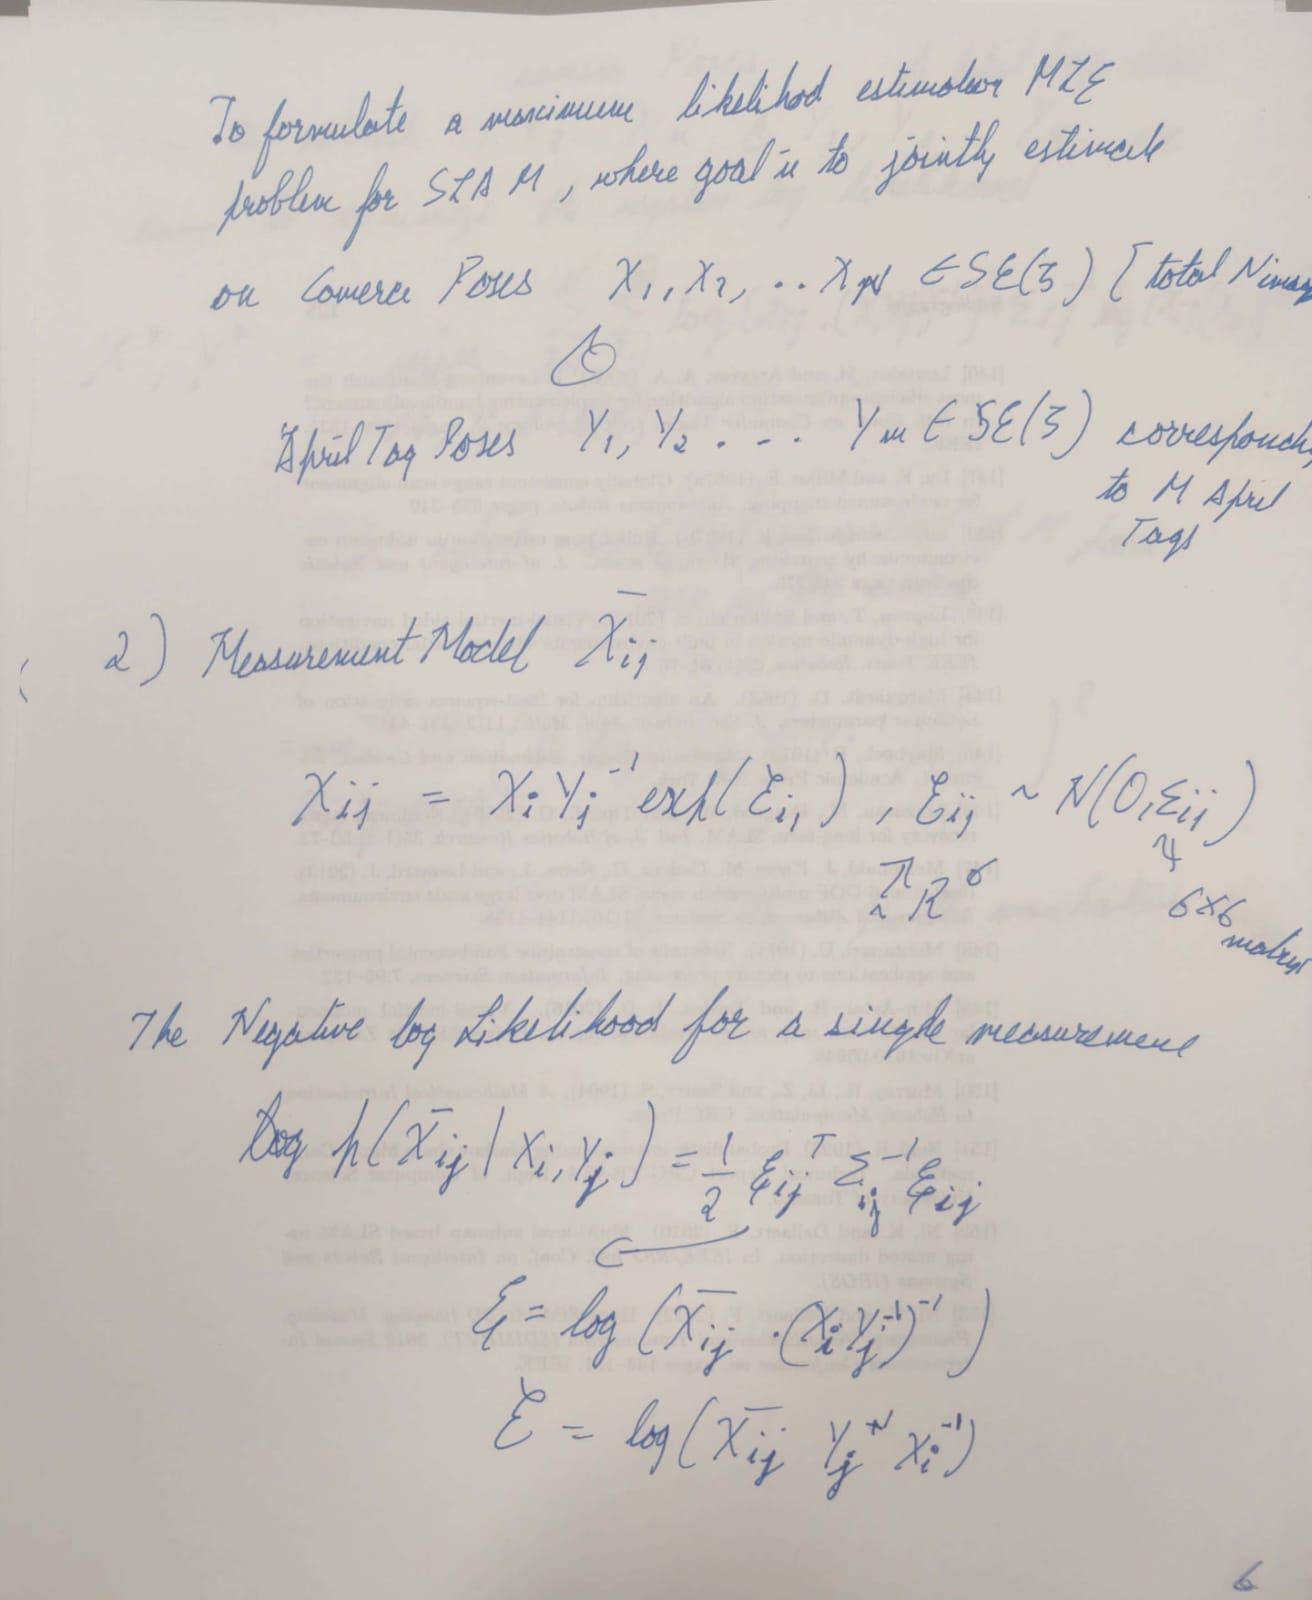 To formulate a maximum likelihod estimator MLE
problem for SLAM, where goal is to jointly estimate
on Camera Poses X₁, X₂, .. X_N ∈ SE(3) [total N
April Tag Poses Y₁, Y₂ . - .. Y_m ∈ SE(3) correspondi
to M April
Tags
2) Measurement Model X̄ij
Xij = Xi Yj⁻¹ exp(ξij) , ξij ~ N(0, Σij)
R⁶
6×6
matrix
The Negative log Likelihood for a single measurement
Log p(X̄ij | Xi, Yj) = 1/2 ξijᵀ Σij⁻¹ ξij
ξ = log (X̄ij . (Xi Yj⁻¹)⁻¹)
ξ = log (X̄ij Yj Xi⁻¹)
6